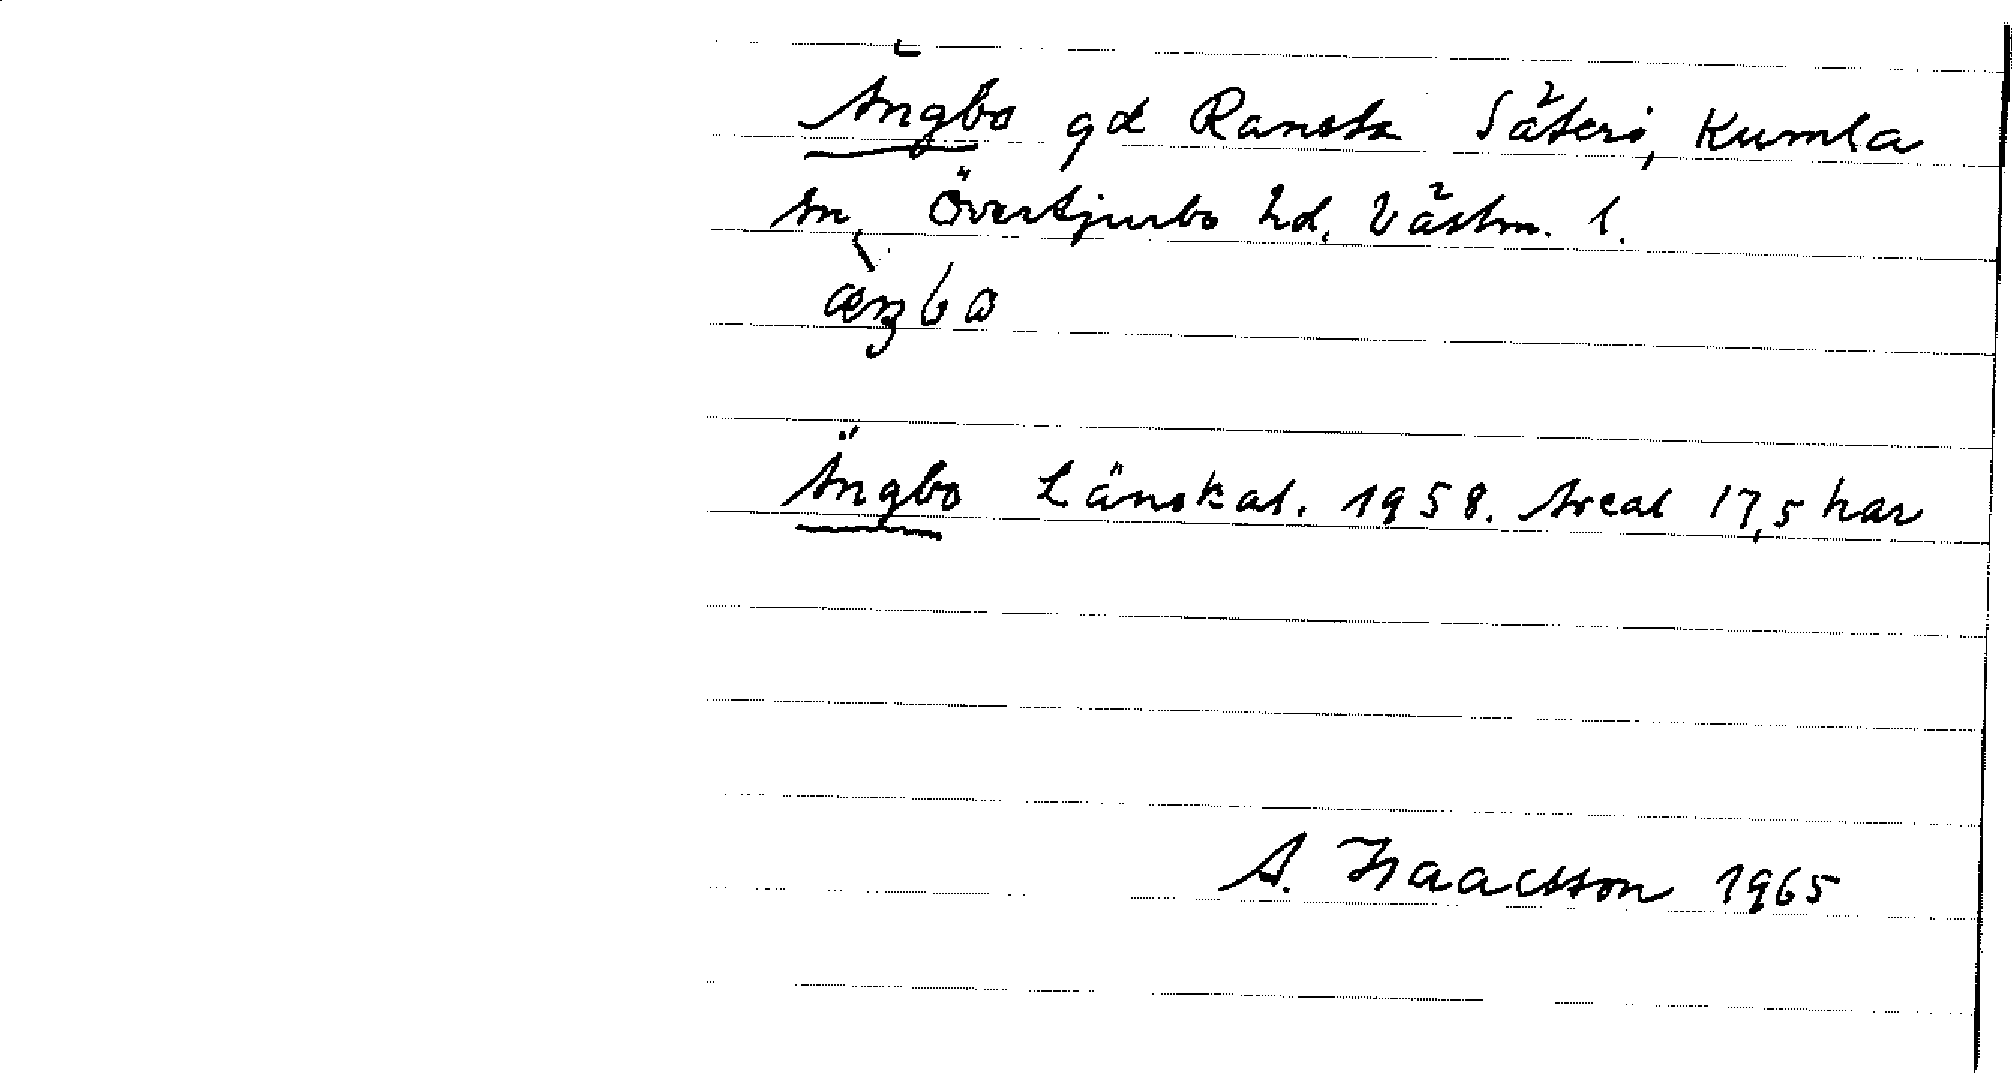 Ängbo gd Ransta Säteri, Kumla
sn, Övertjurbo hd. Västm. l.
æŋbo
Ängbo Länskat. 1958. Areal 17,5 har
A. Isaacsson 1965